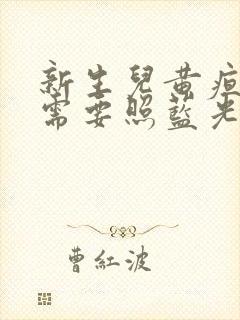 新生兒黃疸
需要照藍光
曹紅波